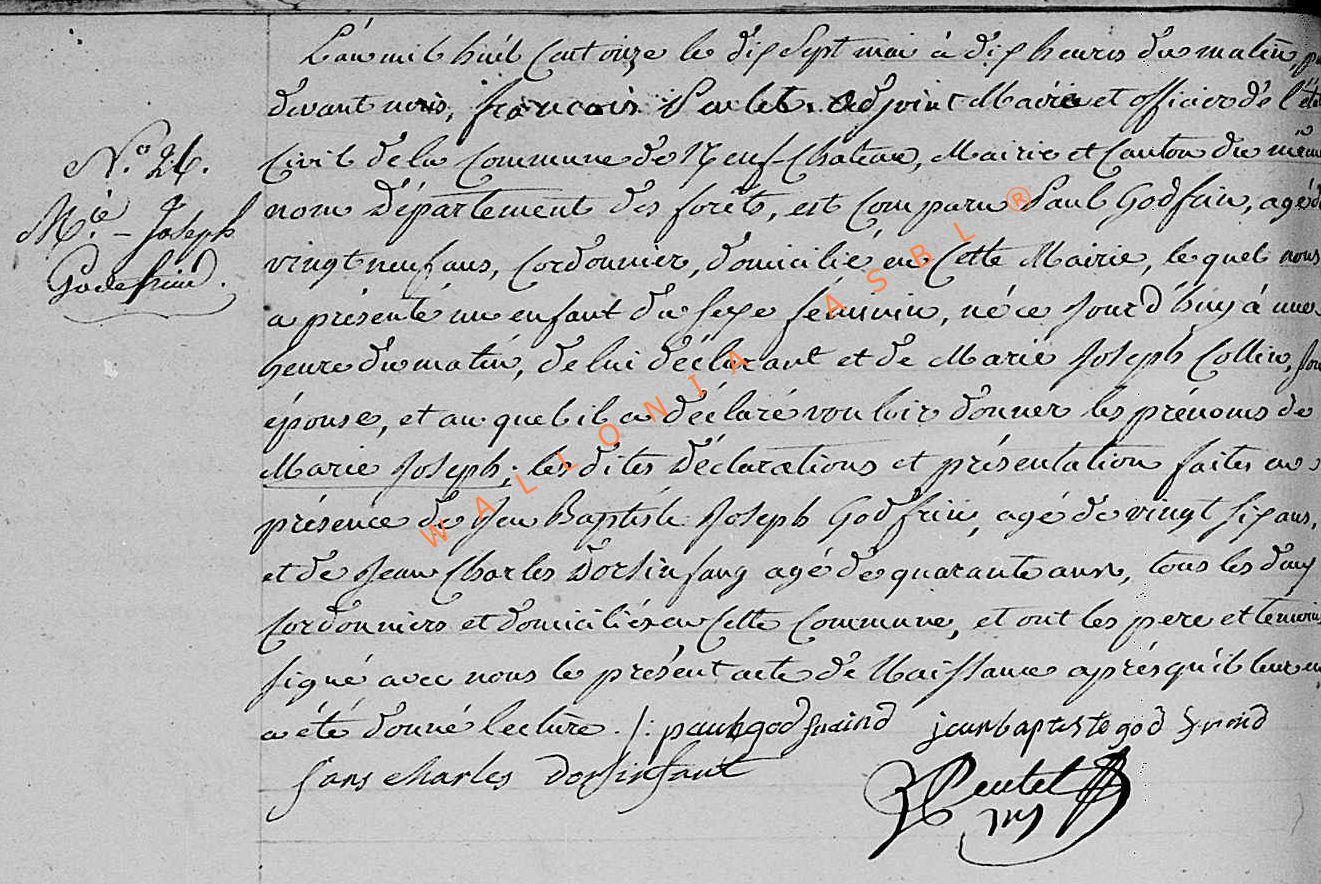 L'an mil huit Cent onze le dix Sept mai à dix heures du matin, par
devant nous, françois adjoint Maire et officier de l'état
N.º 24.
Civil de la Commune de Neuf-Chateau, Mairie et Canton du même
nom Département des forêts, est Comparu Paul Godfrin, agé de
M.ie - Joseph
Godefrind.
vingt neuf ans, Cordonnier, domicilié en Cette Mairie, le quel nous
a présenté un enfant du sexe féminin, né ce Jourd'huy à une
heure du matin, de lui déclarant et de Marie Joseph Collin, son
épouse, et au quel il a déclaré vouloir donner les prénoms de
Marie Joseph; les dites Déclarations et présentation faites en
présence de Jean Baptiste Joseph Godfrin, agé de vingt six ans,
et de Jean Charles Dorsinfang agé de quarante ans, tous les deux
Cordonniers et domiciliés en Cette Commune, et ont les pere et temoins
signé avec nous le présent acte de Naissance après qu'il leur en
a été donné lecture. /: paul godfraind jean baptiste god frind
charles dorsinfant
WALLONIA ASBL ®